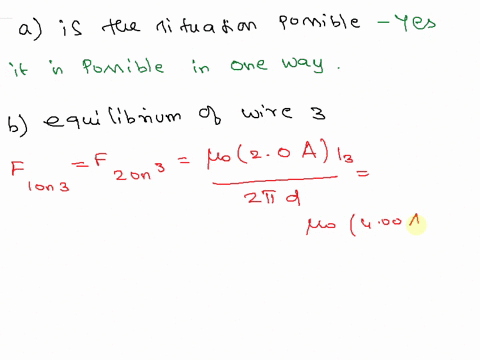 a) is the situation possible - Yes
it is possible in one way.
b) equilibrium of wire 3
F 1on3 = F 2on3 = μ0(2.0 A) I3 / 2π d =
μ0 (4.00 A